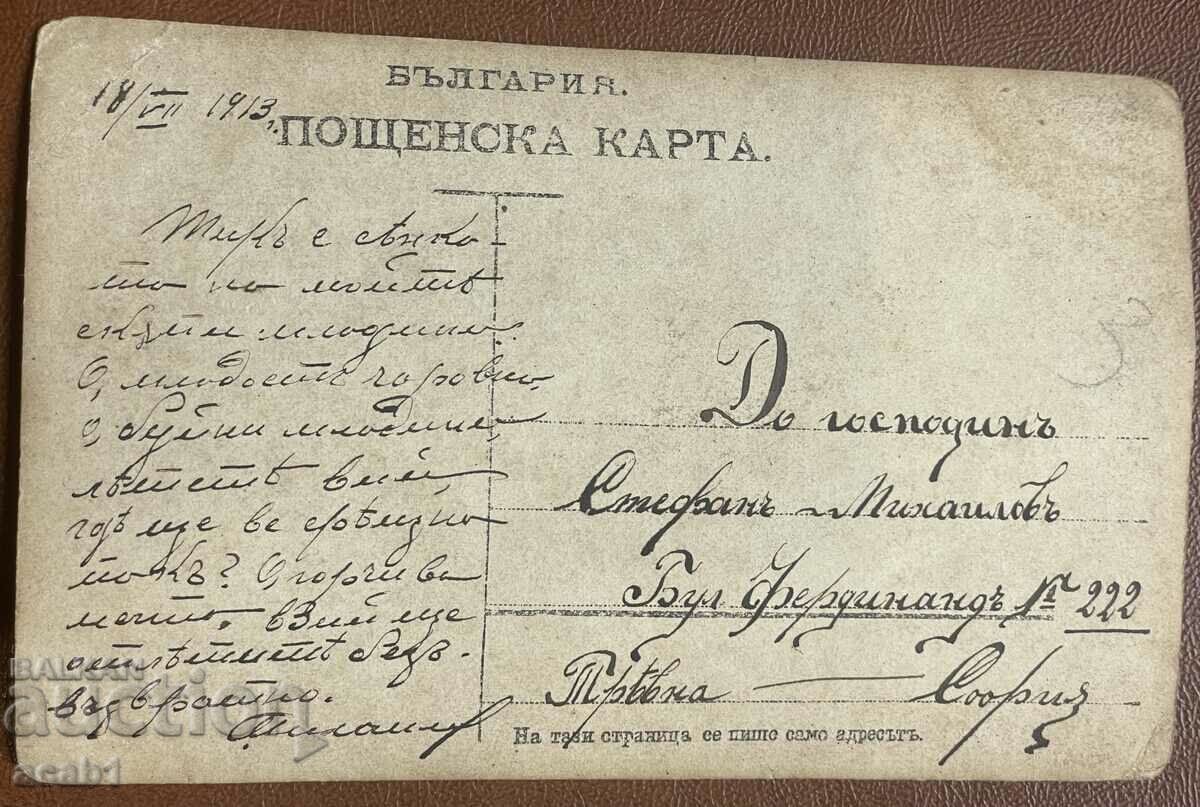 БЪЛГАРИЯ.
18/VII 1913.
ПОЩЕНСКА КАРТА.
е сѣнко-
та на моитѣ
скѫпи младини.
О, младость чаровна,
о, буйни младини,
лѣтитѣ вий,
гдѣ ще ве срѣщна
пакъ? О, горчива
мечто. Вий ще
отлѣтитѣ безъ-
възвратно.
До господинъ
Стефанъ Михаиловъ
Бул Фердинандъ № 222
Трѣвна — София
На тази страница се пише само адресътъ.
BALKAN
auction
acab1